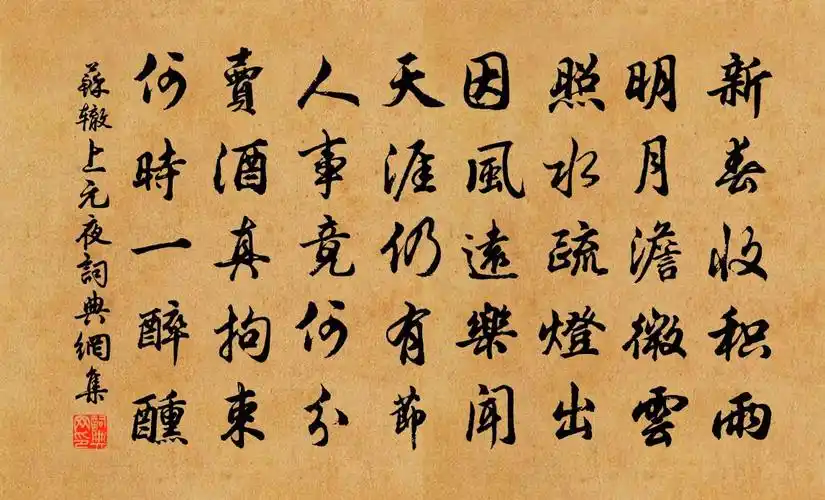 新春收积雨
明月澹微雲
照水疏燈出
因風遠樂聞
天涯仍有節
人事竟何分
賣酒真拘束
何時一醉醺
蘇辙上元夜詞典網集